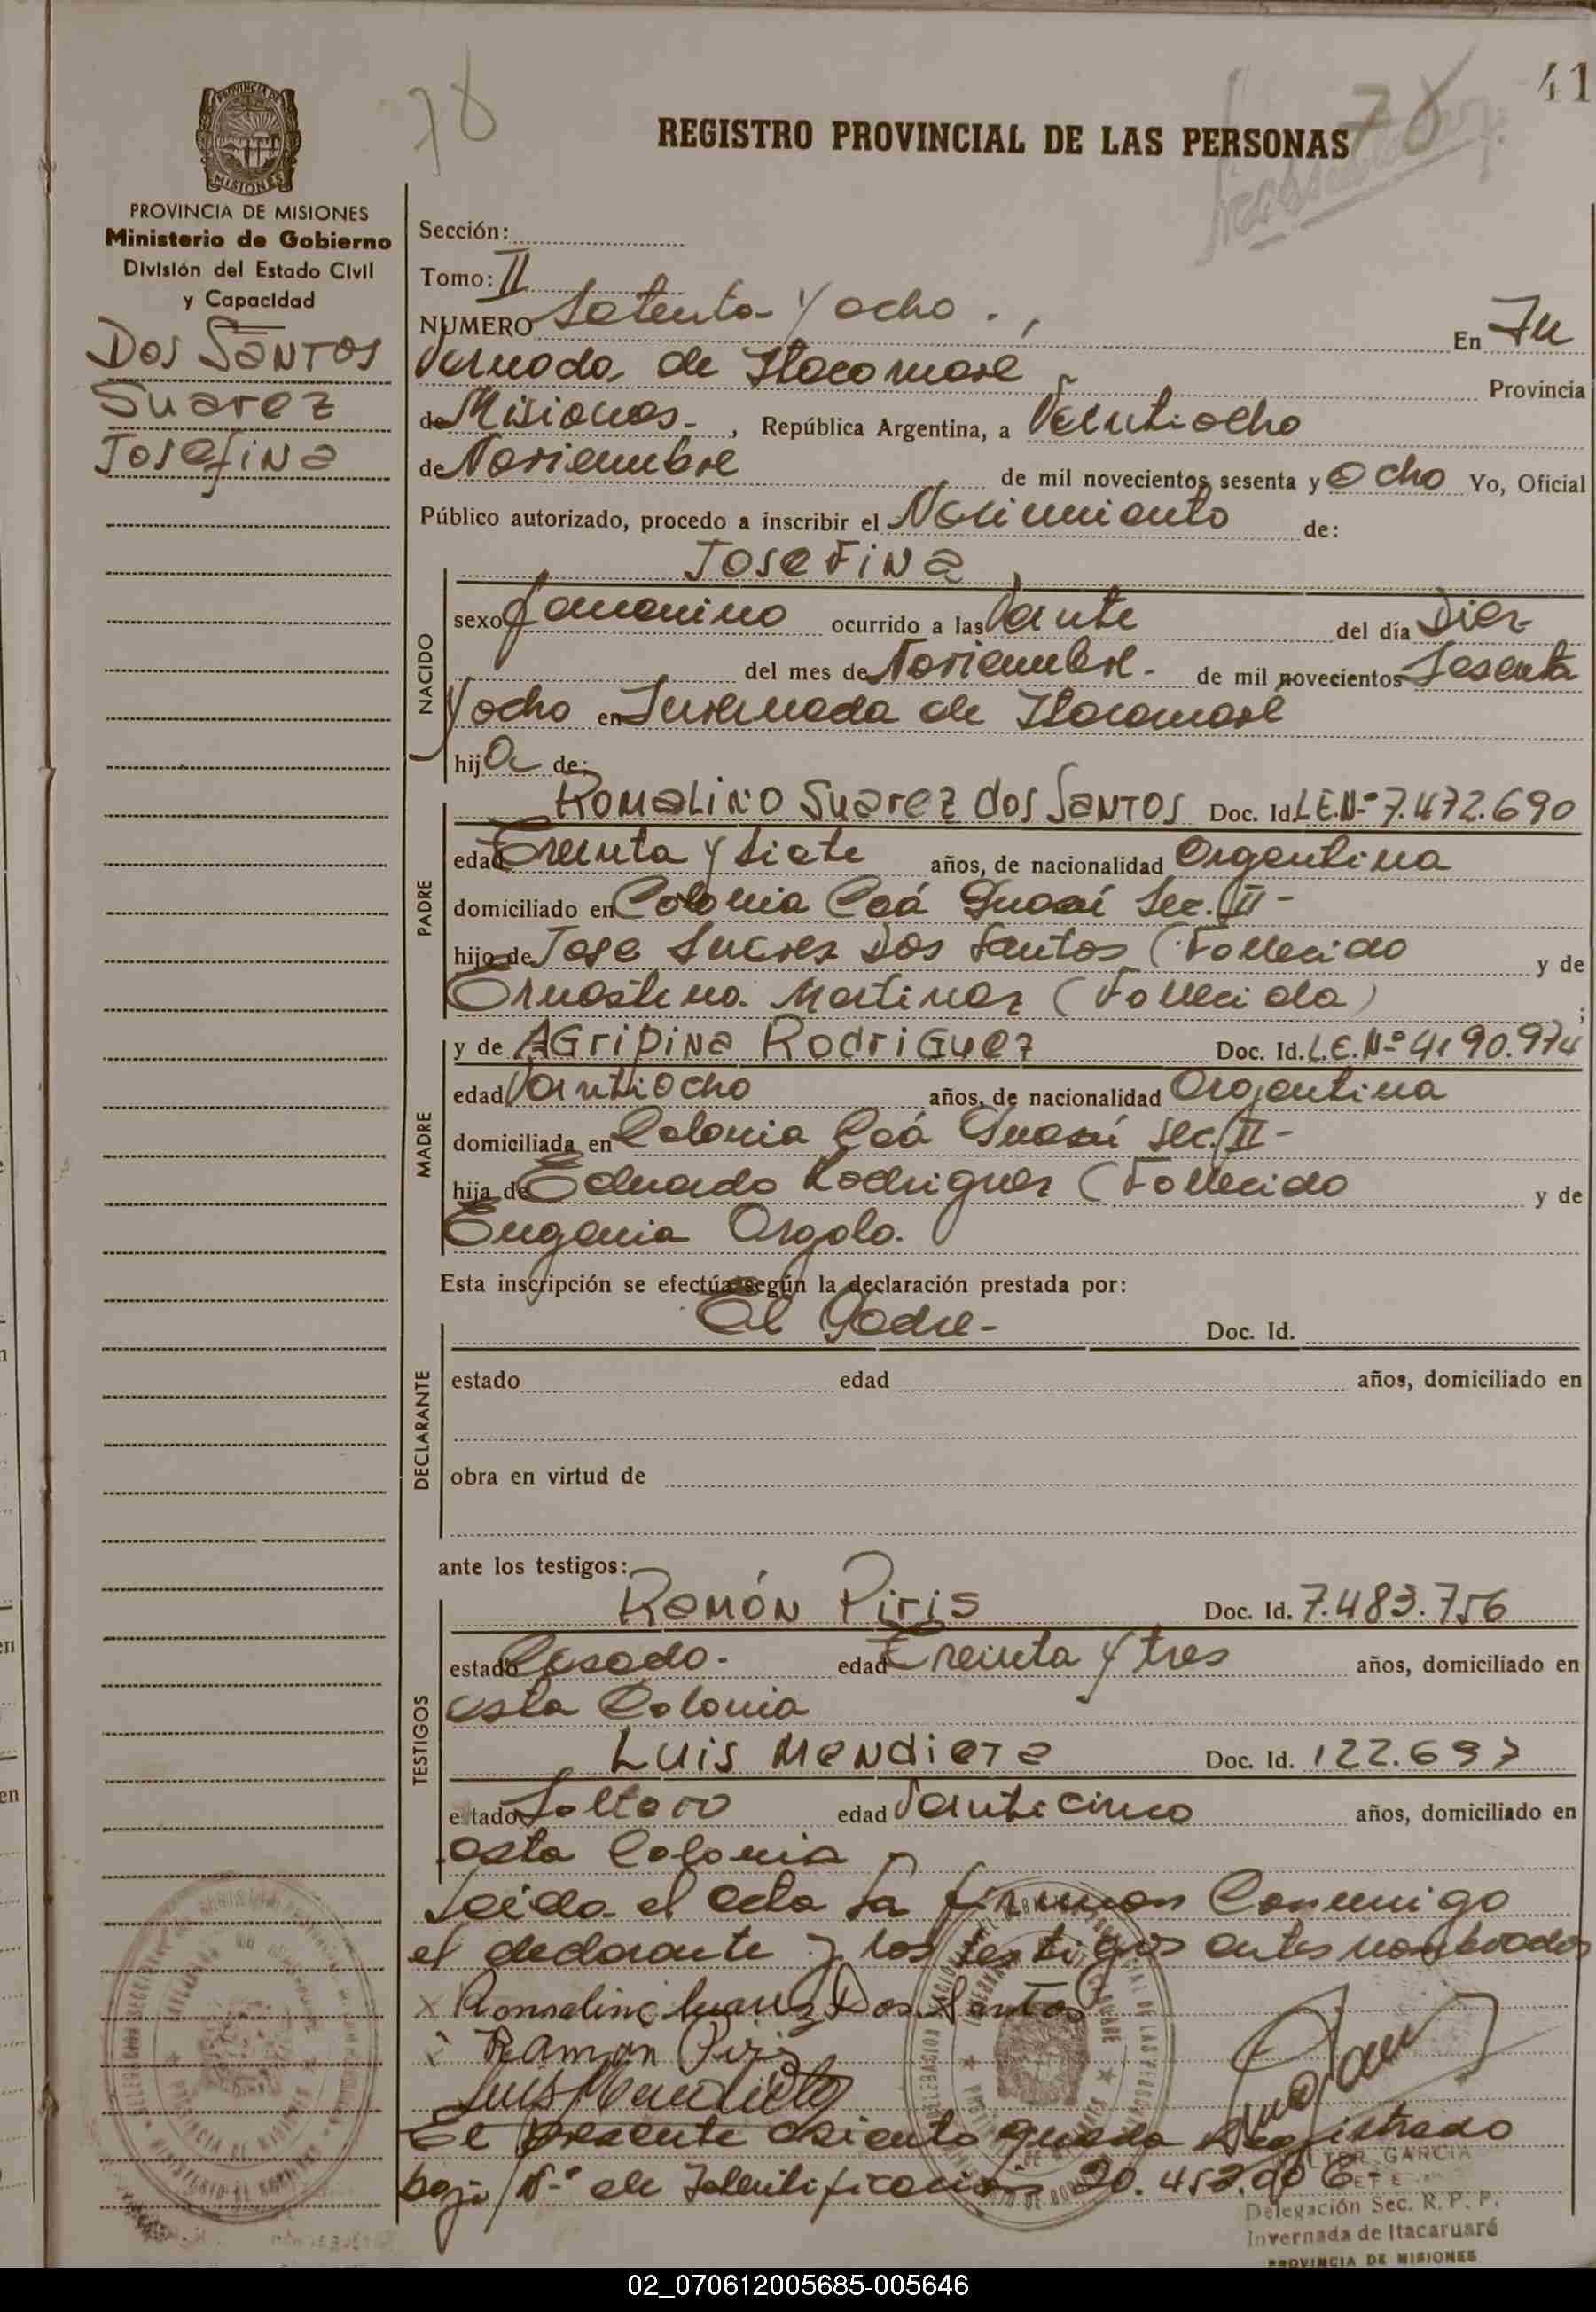 41
78
78
REGISTRO PROVINCIAL DE LAS PERSONAS
PROVINCIA DE MISIONES
Ministerio de Gobierno
División del Estado Civil
y Capacidad
Dos Santos
Suarez
Josefina
Sección:
Tomo: II
NUMERO Setenta y ocho . , En In
vernada de Itacaruaré Provincia
de Misiones - , República Argentina, a Veintiocho
de Noviembre de mil novecientos sesenta y Ocho Yo, Oficial
Público autorizado, procedo a inscribir el Nacimiento de:
NACIDO
Josefina
sexo femenino ocurrido a las Veinte del día Diez
del mes de Noviembre - de mil novecientos Sesenta
y ocho en Invernada de Itacaruaré
hij a de:
PADRE
Romalino Suarez dos Santos Doc. Id. L.E.Nº 7.472.690
edad Treinta y Siete años, de nacionalidad Argentina
domiciliado en Colonia Caá Guazú Sec. II -
hijo de Jose Suares Dos Santos (Fallecido y de
Ernestina Martinez (Fallecida) ;
MADRE
y de Agripina Rodriguez Doc. Id. L.C.Nº 4190.974
edad Veintiocho años, de nacionalidad Argentina
domiciliada en Colonia Caá Guazú Sec. II -
hija de Eduardo Rodriguez (Fallecido y de
Eugenia Argolo.
Esta inscripción se efectúa según la declaración prestada por:
DECLARANTE
El Padre - Doc. Id.
estado edad años, domiciliado en
obra en virtud de
ante los testigos:
TESTIGOS
Ramón Piris Doc. Id. 7.483.756
estado Casado. edad Treinta y tres años, domiciliado en
esta Colonia
Luis Mendieta Doc. Id. 122.697
estado Soltero edad Veinticinco años, domiciliado en
esta Colonia
Leida el acta la firman Conmigo
el declarante y los testigos antes nombrados
x Romalino Suarez Dos Santos
Ramon Piris
Luis Mendieta
El presente asiento queda Registrado
bajo Nº de Identificacion 20.452.906
GARCIA
Delegación Sec. R. P. P.
Invernada de Itacaruaré
PROVINCIA DE MISIONES
02_070612005685-005646